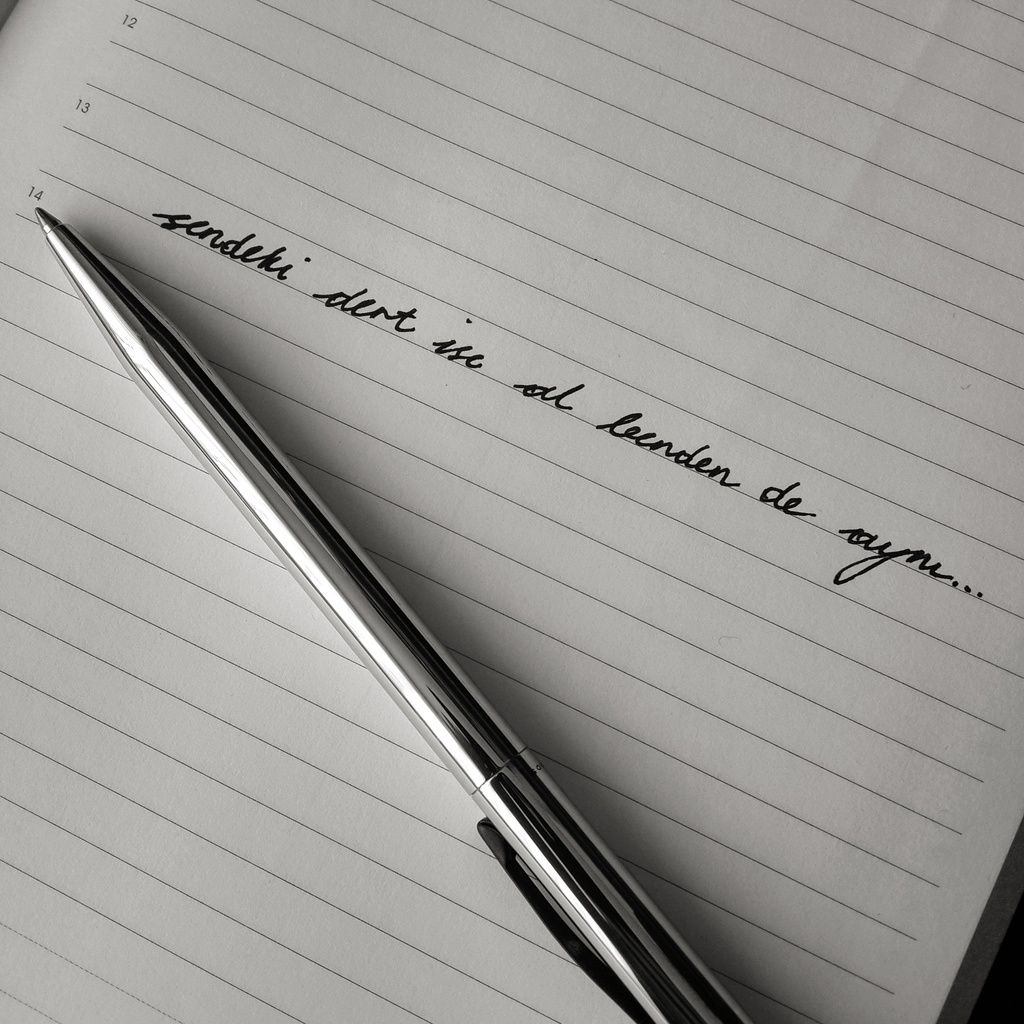 12
13
14
sendeki dert ise al benden de aynı...